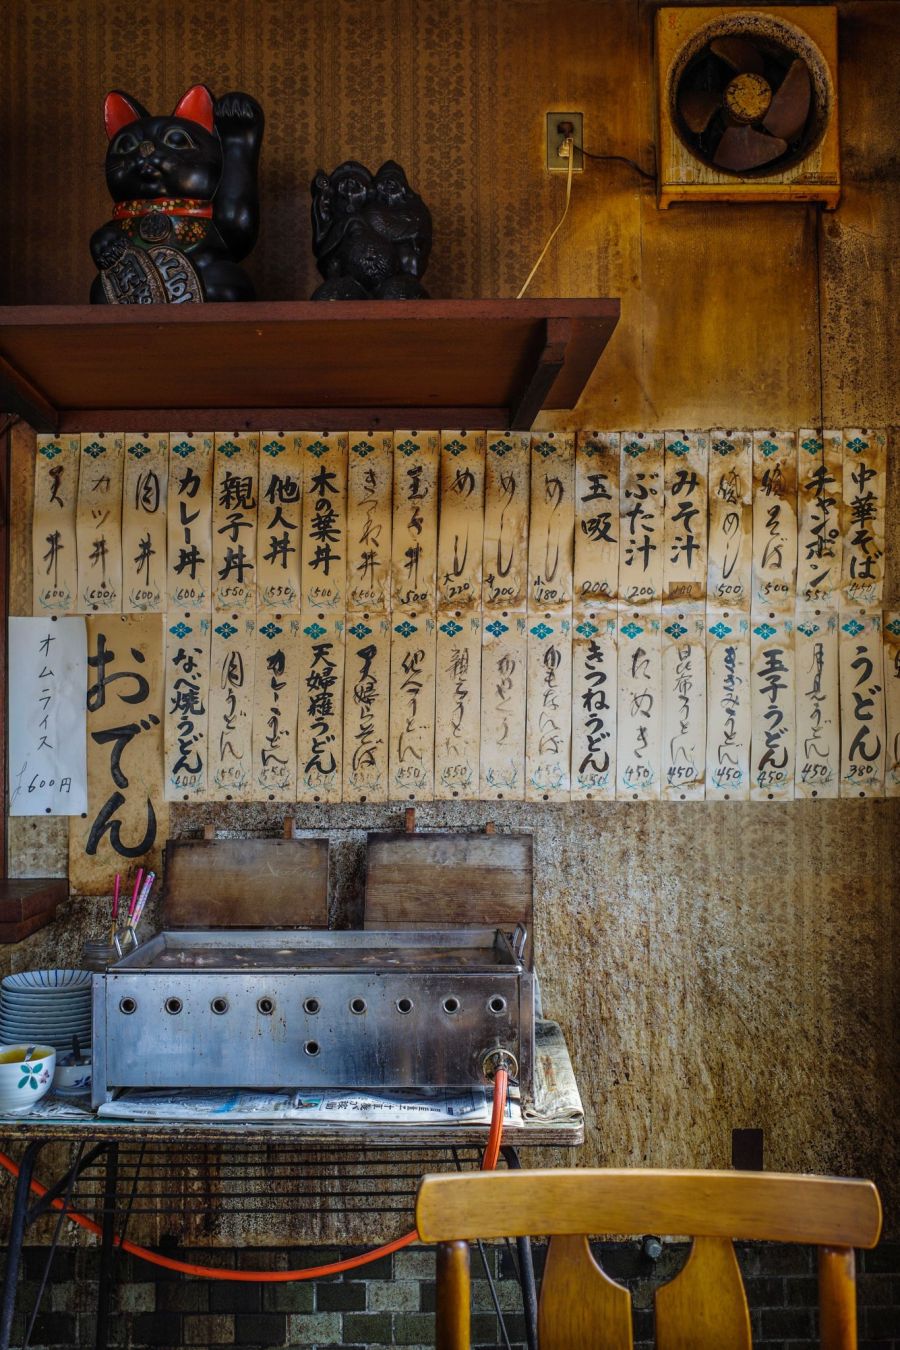 中華そば 450
チャンポン 550
焼そば 500
焼めし 500
みそ汁 100
ぶた汁 200
玉吸 200
めし 小 180
めし 中 200
めし 大 220
玉子丼 500
きつね丼 500
木の葉丼 500
他人丼 550
親子丼 550
カレー丼 600
肉丼 600
カツ丼 600
天丼 600
うどん 380
月見うどん 450
玉子うどん 450
きざみうどん 450
昆布うどん 450
たぬき 450
きつねうどん 450
かもなんば 550
かやく
親子うどん 550
他人うどん 550
天婦らそば
天婦羅うどん
カレーうどん 550
肉うどん 550
なべ焼うどん 600
おでん
オムライス
600円